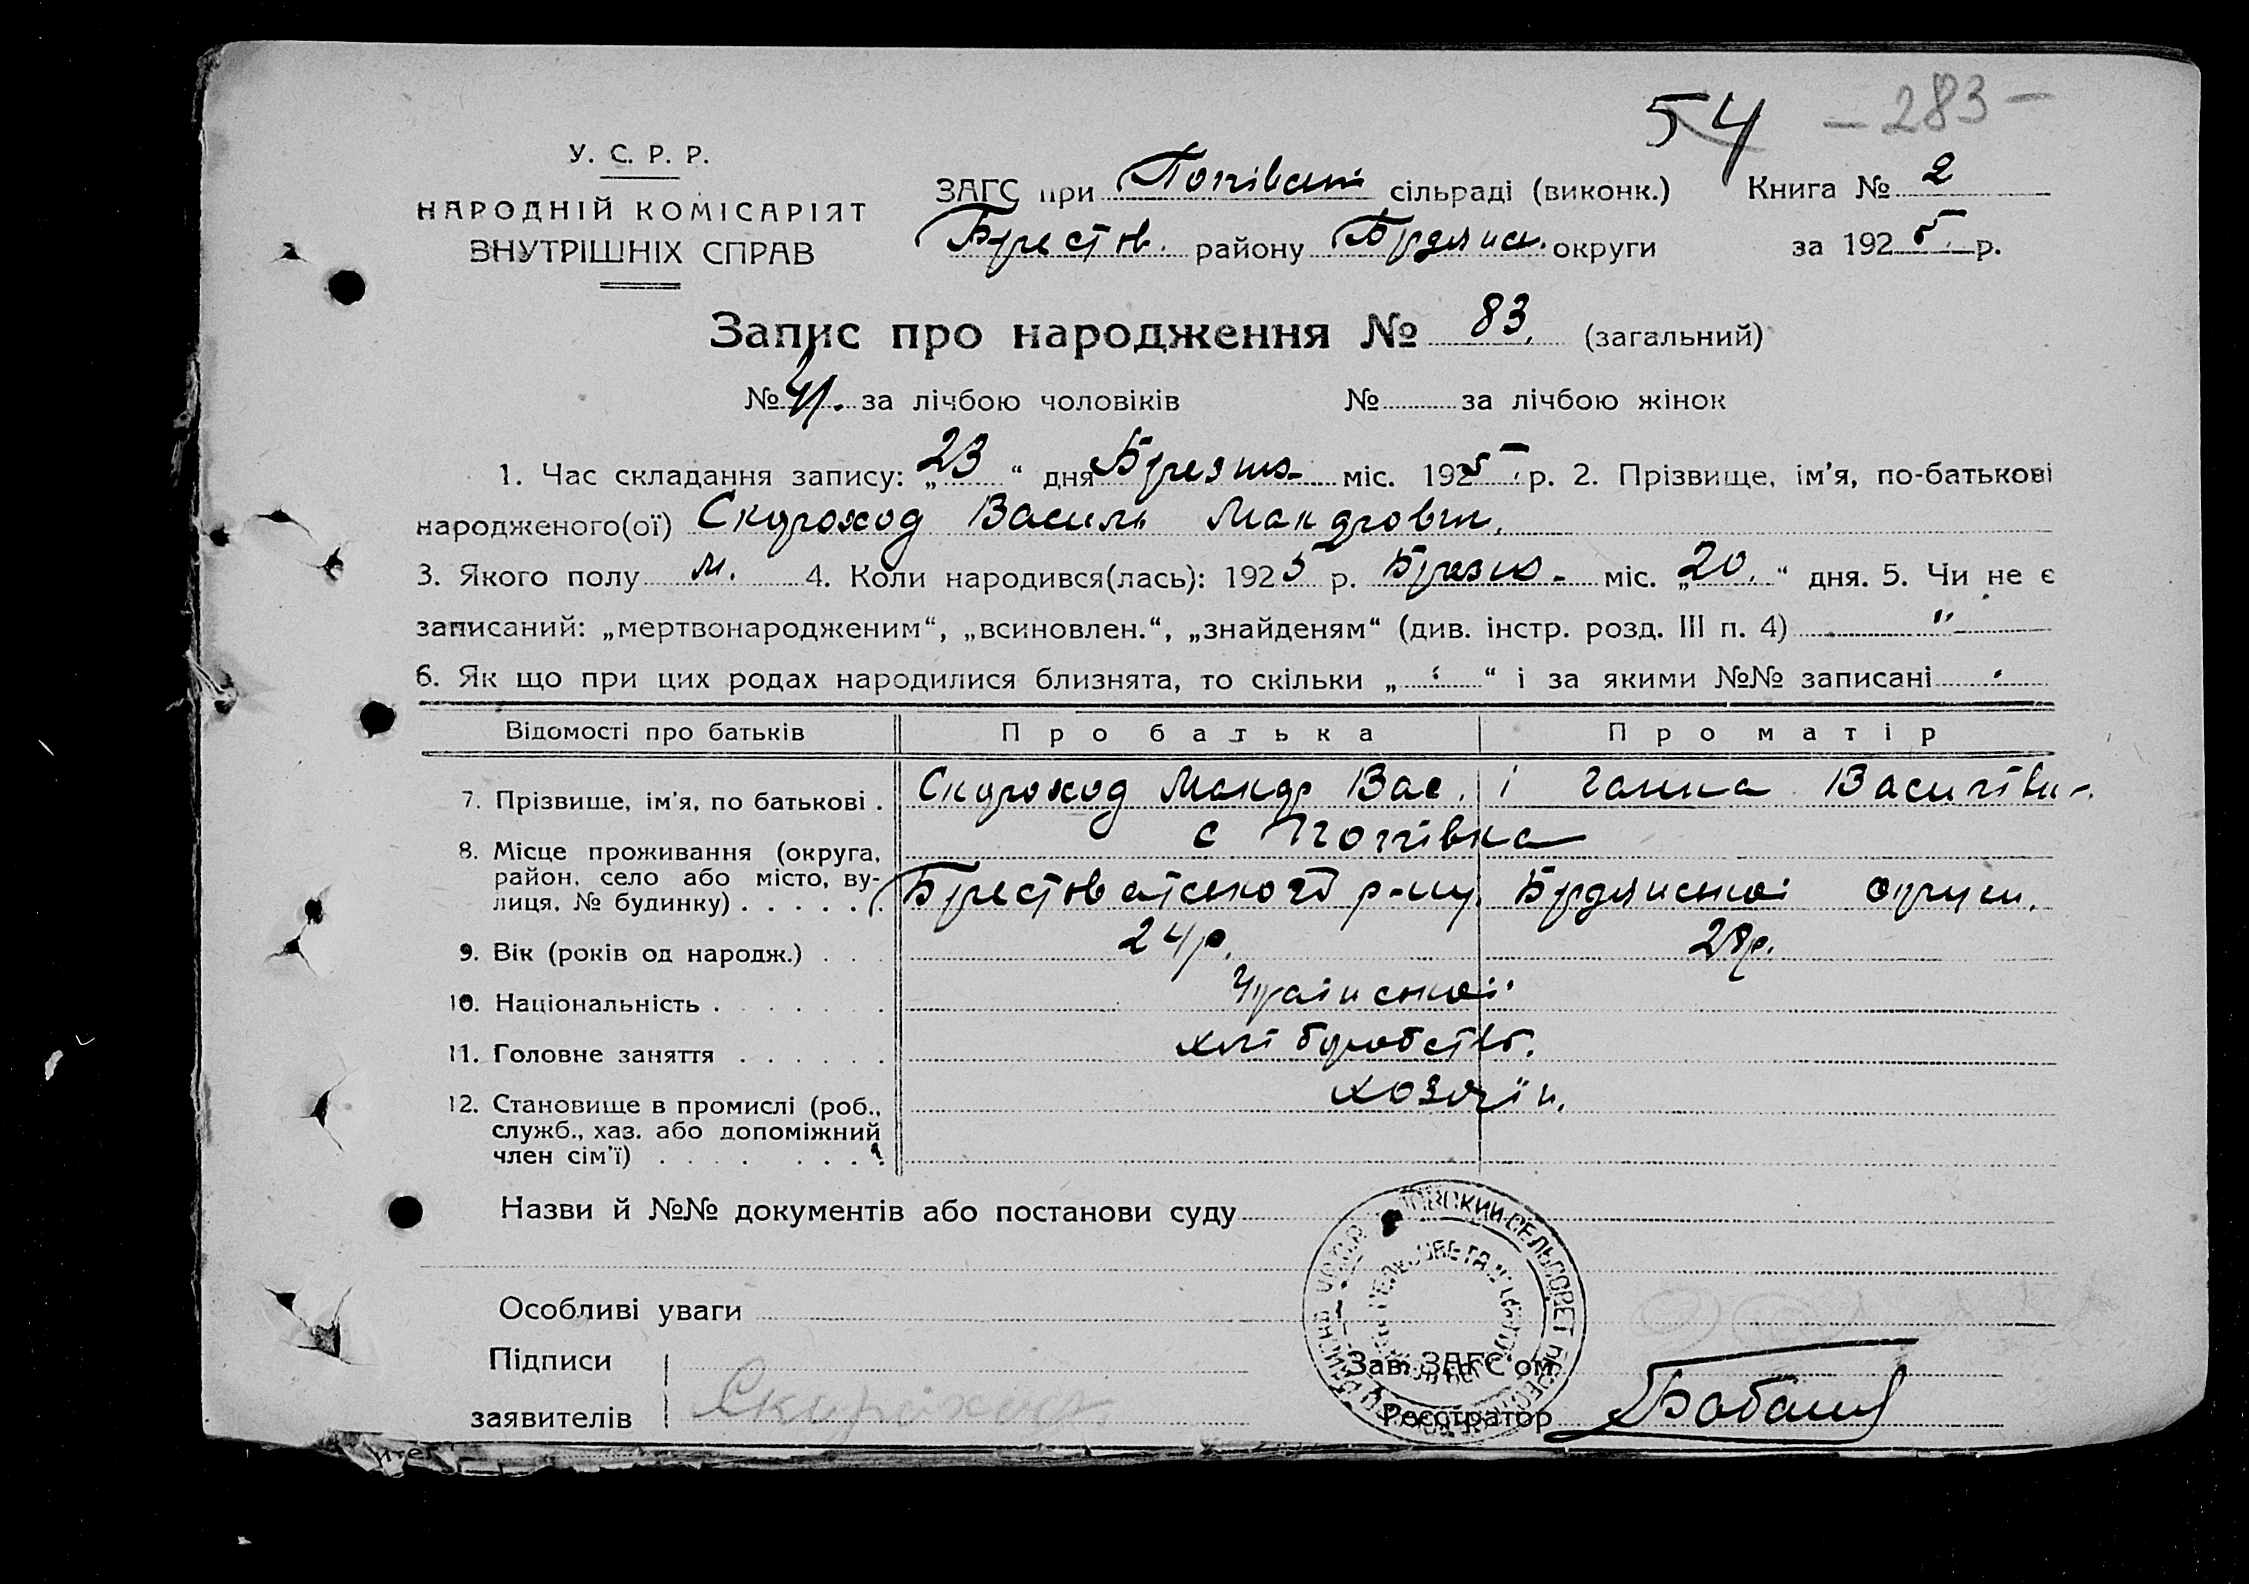 54 — 283 —
У. С. Р. Р.
НАРОДНІЙ КОМІСАРІЯТ
ВНУТРІШНІХ СПРАВ
ЗАГС при Попівські сільраді (виконк.) Книга № 2
Берестів. району Бердянсь. округи за 1925 р.
Запис про народження № 83. (загальний)
№ 41. за лічбою чоловіків № за лічбою жінок
1. Час складання запису: „23“ дня Березня міс. 1925 р. 2. Прізвище, ім'я, по-батькові
народженого(ої) Скороход Василь Макарович.
3. Якого полу м. 4. Коли народився(лась): 1925 р. Березня міс. „20.“ дня. 5. Чи не є
записаний: „мертвонародженим“, „всиновлен.“, „знайденям“ (див. інстр. розд. III п. 4) "
6. Як що при цих родах народилися близнята, то скільки „ “ і за якими №№ записані
Відомості про батьків Про батька Про матір
7. Прізвище, ім'я, по батькові . Скороход Макар Вас. і Ганна Василівн.
8. Місце проживання (округа, район, село або місто, вулиця, № будинку) . . . . . с Попівка
Берестоватського р-ну. Бердянської округи.
9. Вік (років од народж.) . . . 24 р. 28 р.
10. Національність . . . . . . . Української
11. Головне заняття . . . . . . хліборобство.
12. Становище в промислі (роб., служб., хаз. або допоміжний член сім'ї) . . . . . . . . хозяїн.
Назви й №№ документів або постанови суду
Особливі уваги
Підписи
заявителів Скороход
Зав. ЗАГС'ом
Реєстратор